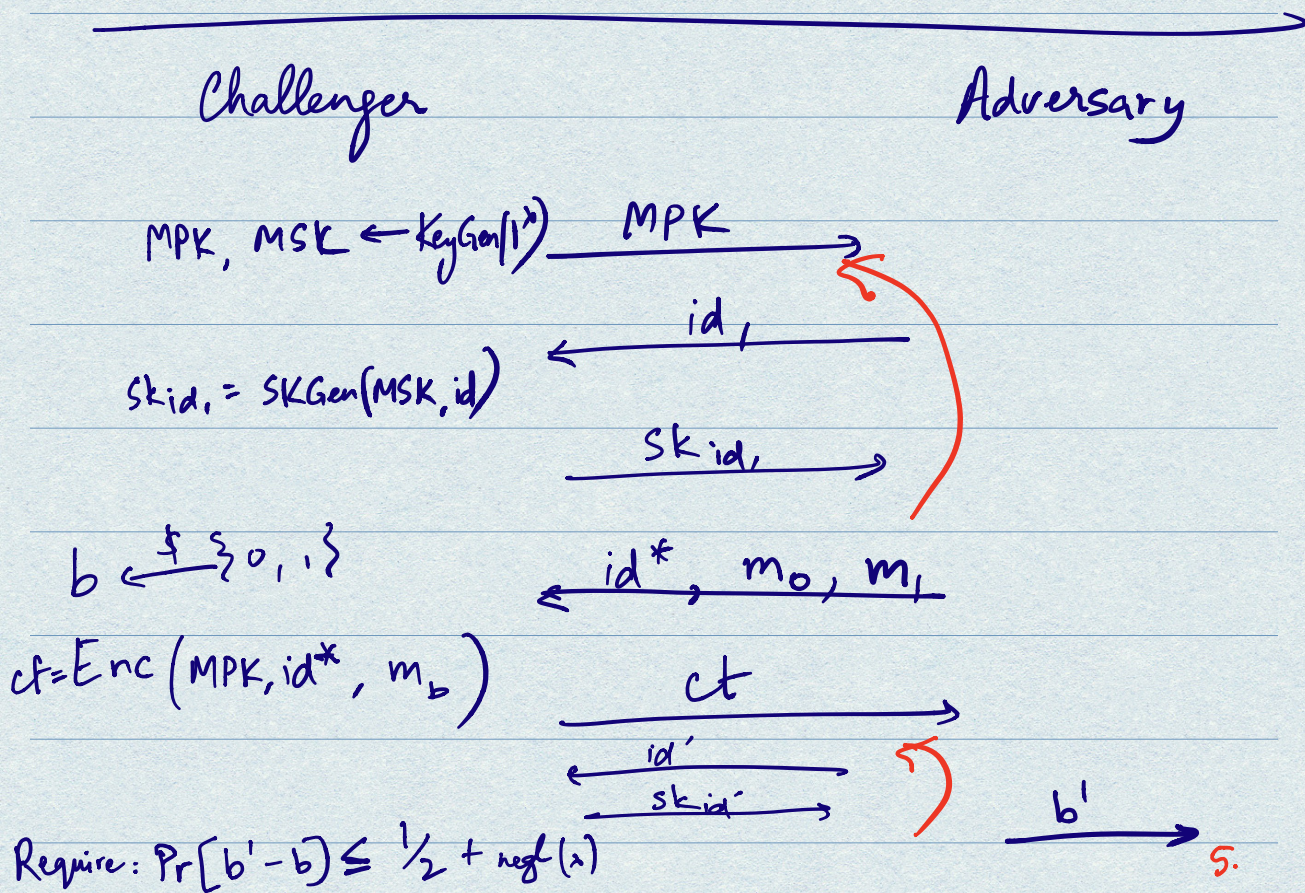 Challenger Adversary
MPK, MSK ← KeyGen(1^λ) MPK
id₁
sk_id₁ = SKGen(MSK, id)
sk_id₁
b ←$ {0, 1} id*, m₀, m₁
ct = Enc(MPK, id*, m_b) ct
id'
sk_id'
b'
Require: Pr[b' - b] ≤ 1/2 + negl(λ)
s.